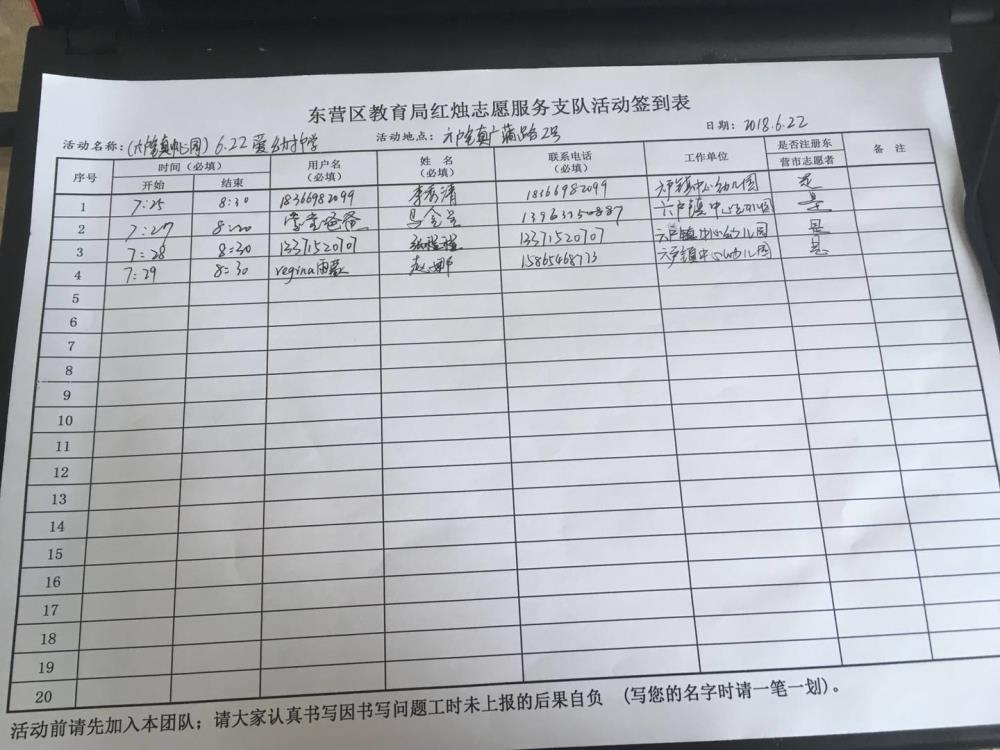 东营区教育局红烛志愿服务支队活动签到表
活动名称：(六户镇中心园) 6.22 爱 活动地点：六户镇广蒲路2号 日期：2018.6.22
序号 时间（必填） 用户名（必填） 姓 名（必填） 联系电话（必填） 工作单位 是否注册东营市志愿者 备 注
开始 结束
1 7:25 8:30 18366982099 李秀清 18366982099 六户镇中心幼儿园 是
2 7:27 8:20 爸爸 六户镇中心幼儿园 是
3 7:28 8:30 13371520707 张程程 13371520707 六户镇中心幼儿园 是
4 7:29 8:30 regina雨蒙 赵娜 六户镇中心幼儿园 是
5
6
7
8
9
10
11
12
13
14
15
16
17
18
19
20
活动前请先加入本团队；请大家认真书写因书写问题工时未上报的后果自负 （写您的名字时请一笔一划）。